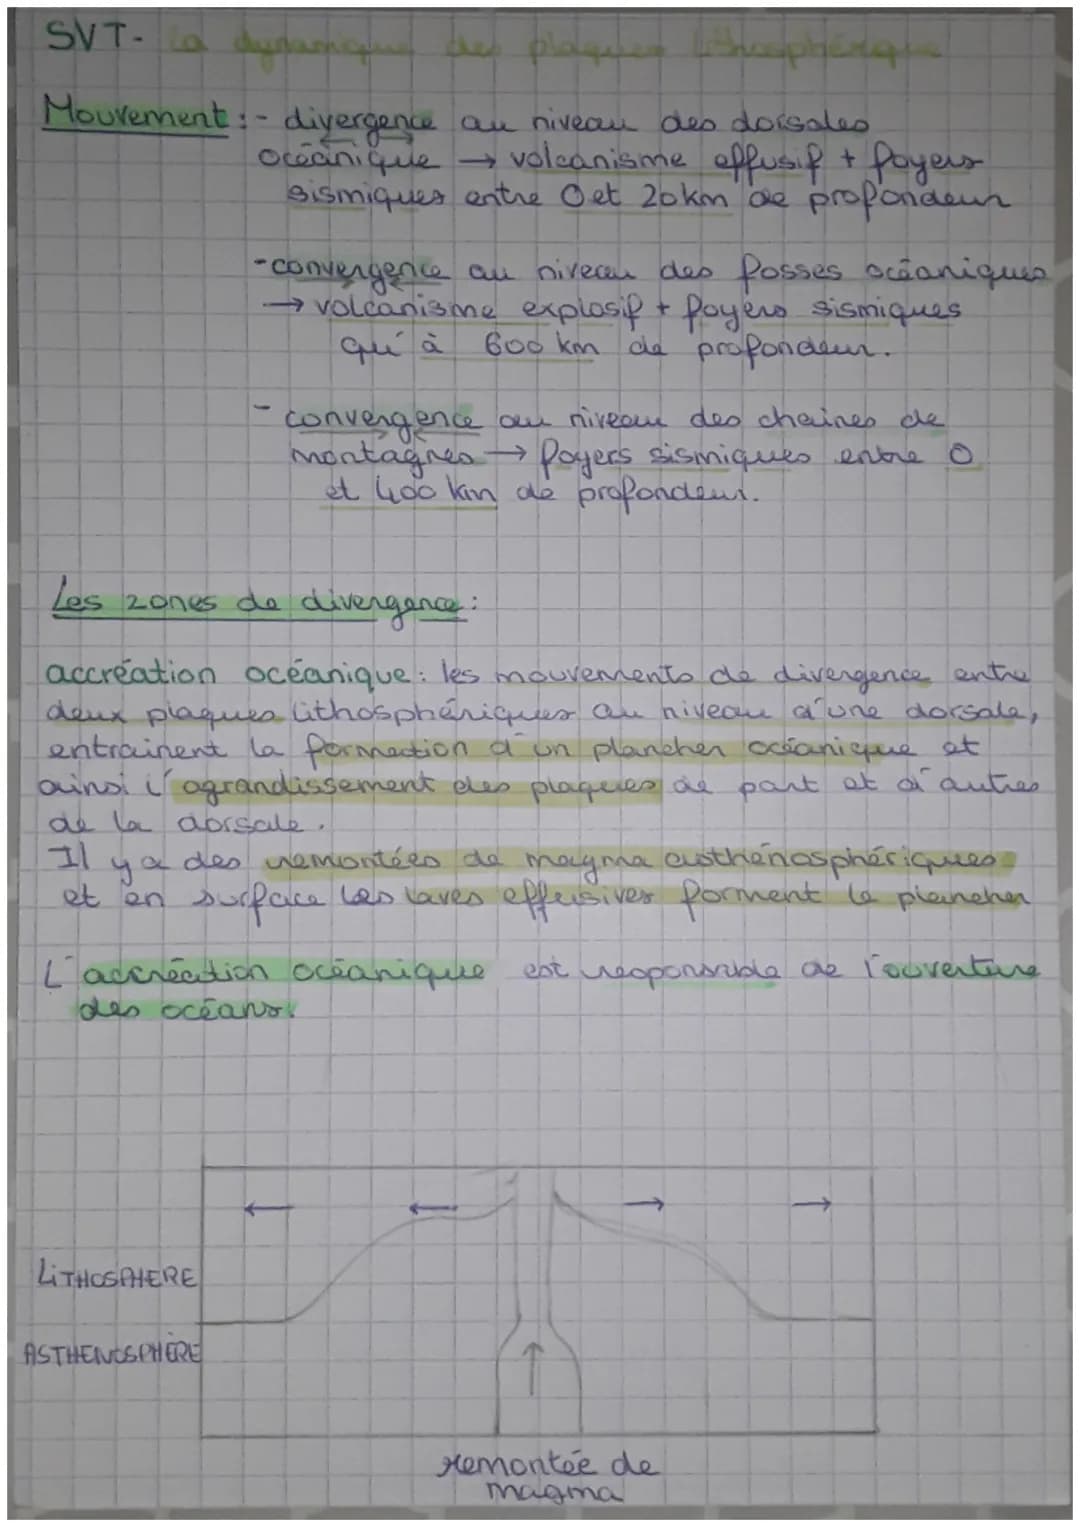 SVT- La dynamique des plaques lithosphérique
Mouvement : - divergence au niveau des dorsales
océanique → volcanisme effusif + foyers
sismiques entre 0 et 20 km de profondeur
- convergence au niveau des fosses océaniques
→ volcanisme explosif + foyers sismiques
qu'à 600 km de profondeur.
- convergence au niveau des chaines de
montagnes → foyers sismiques entre 0
et 400 km de profondeur.
Les zones de divergence :
accréation océanique : les mouvements de divergence entre
deux plaques lithosphériques au niveau d'une dorsale,
entrainent la formation d'un plancher océanique et
ainsi l'agrandissement des plaques de part et d'autres
de la dorsale.
Il y a des remontées de magma asthénosphériques
et en surface les laves effusives forment le plancher
L'accréation océanique est responsable de l'ouverture
des océans.
← ← → →
LITHOSPHERE
ASTHENOSPHÈRE
↑
remontée de
magma